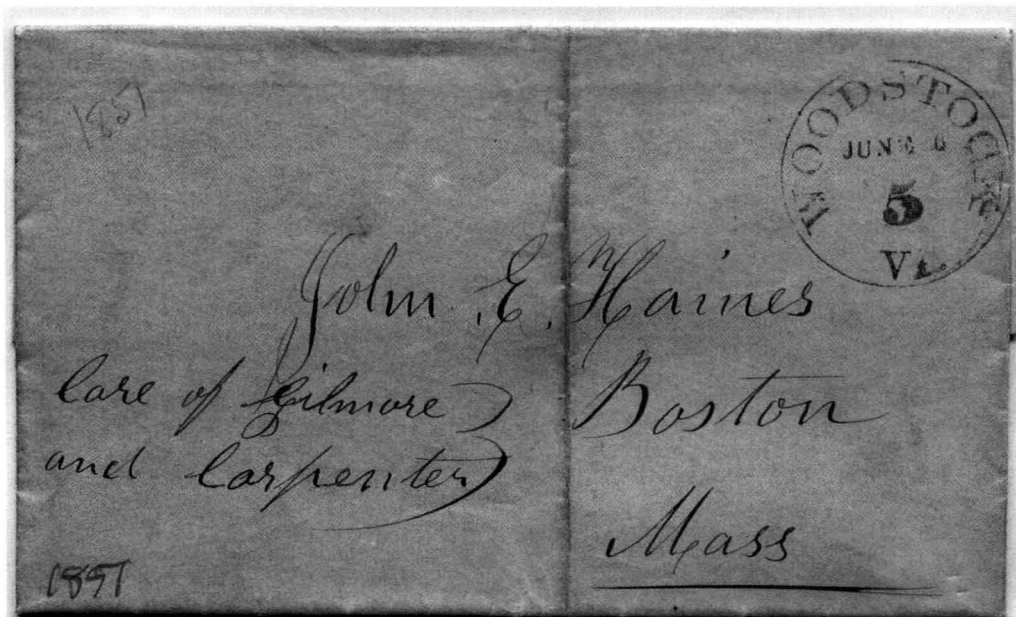 1851
WOODSTOCK
JUNE 6
5
John E. Haines
Care of Gilmore
and Carpenter
Boston
Mass
1851